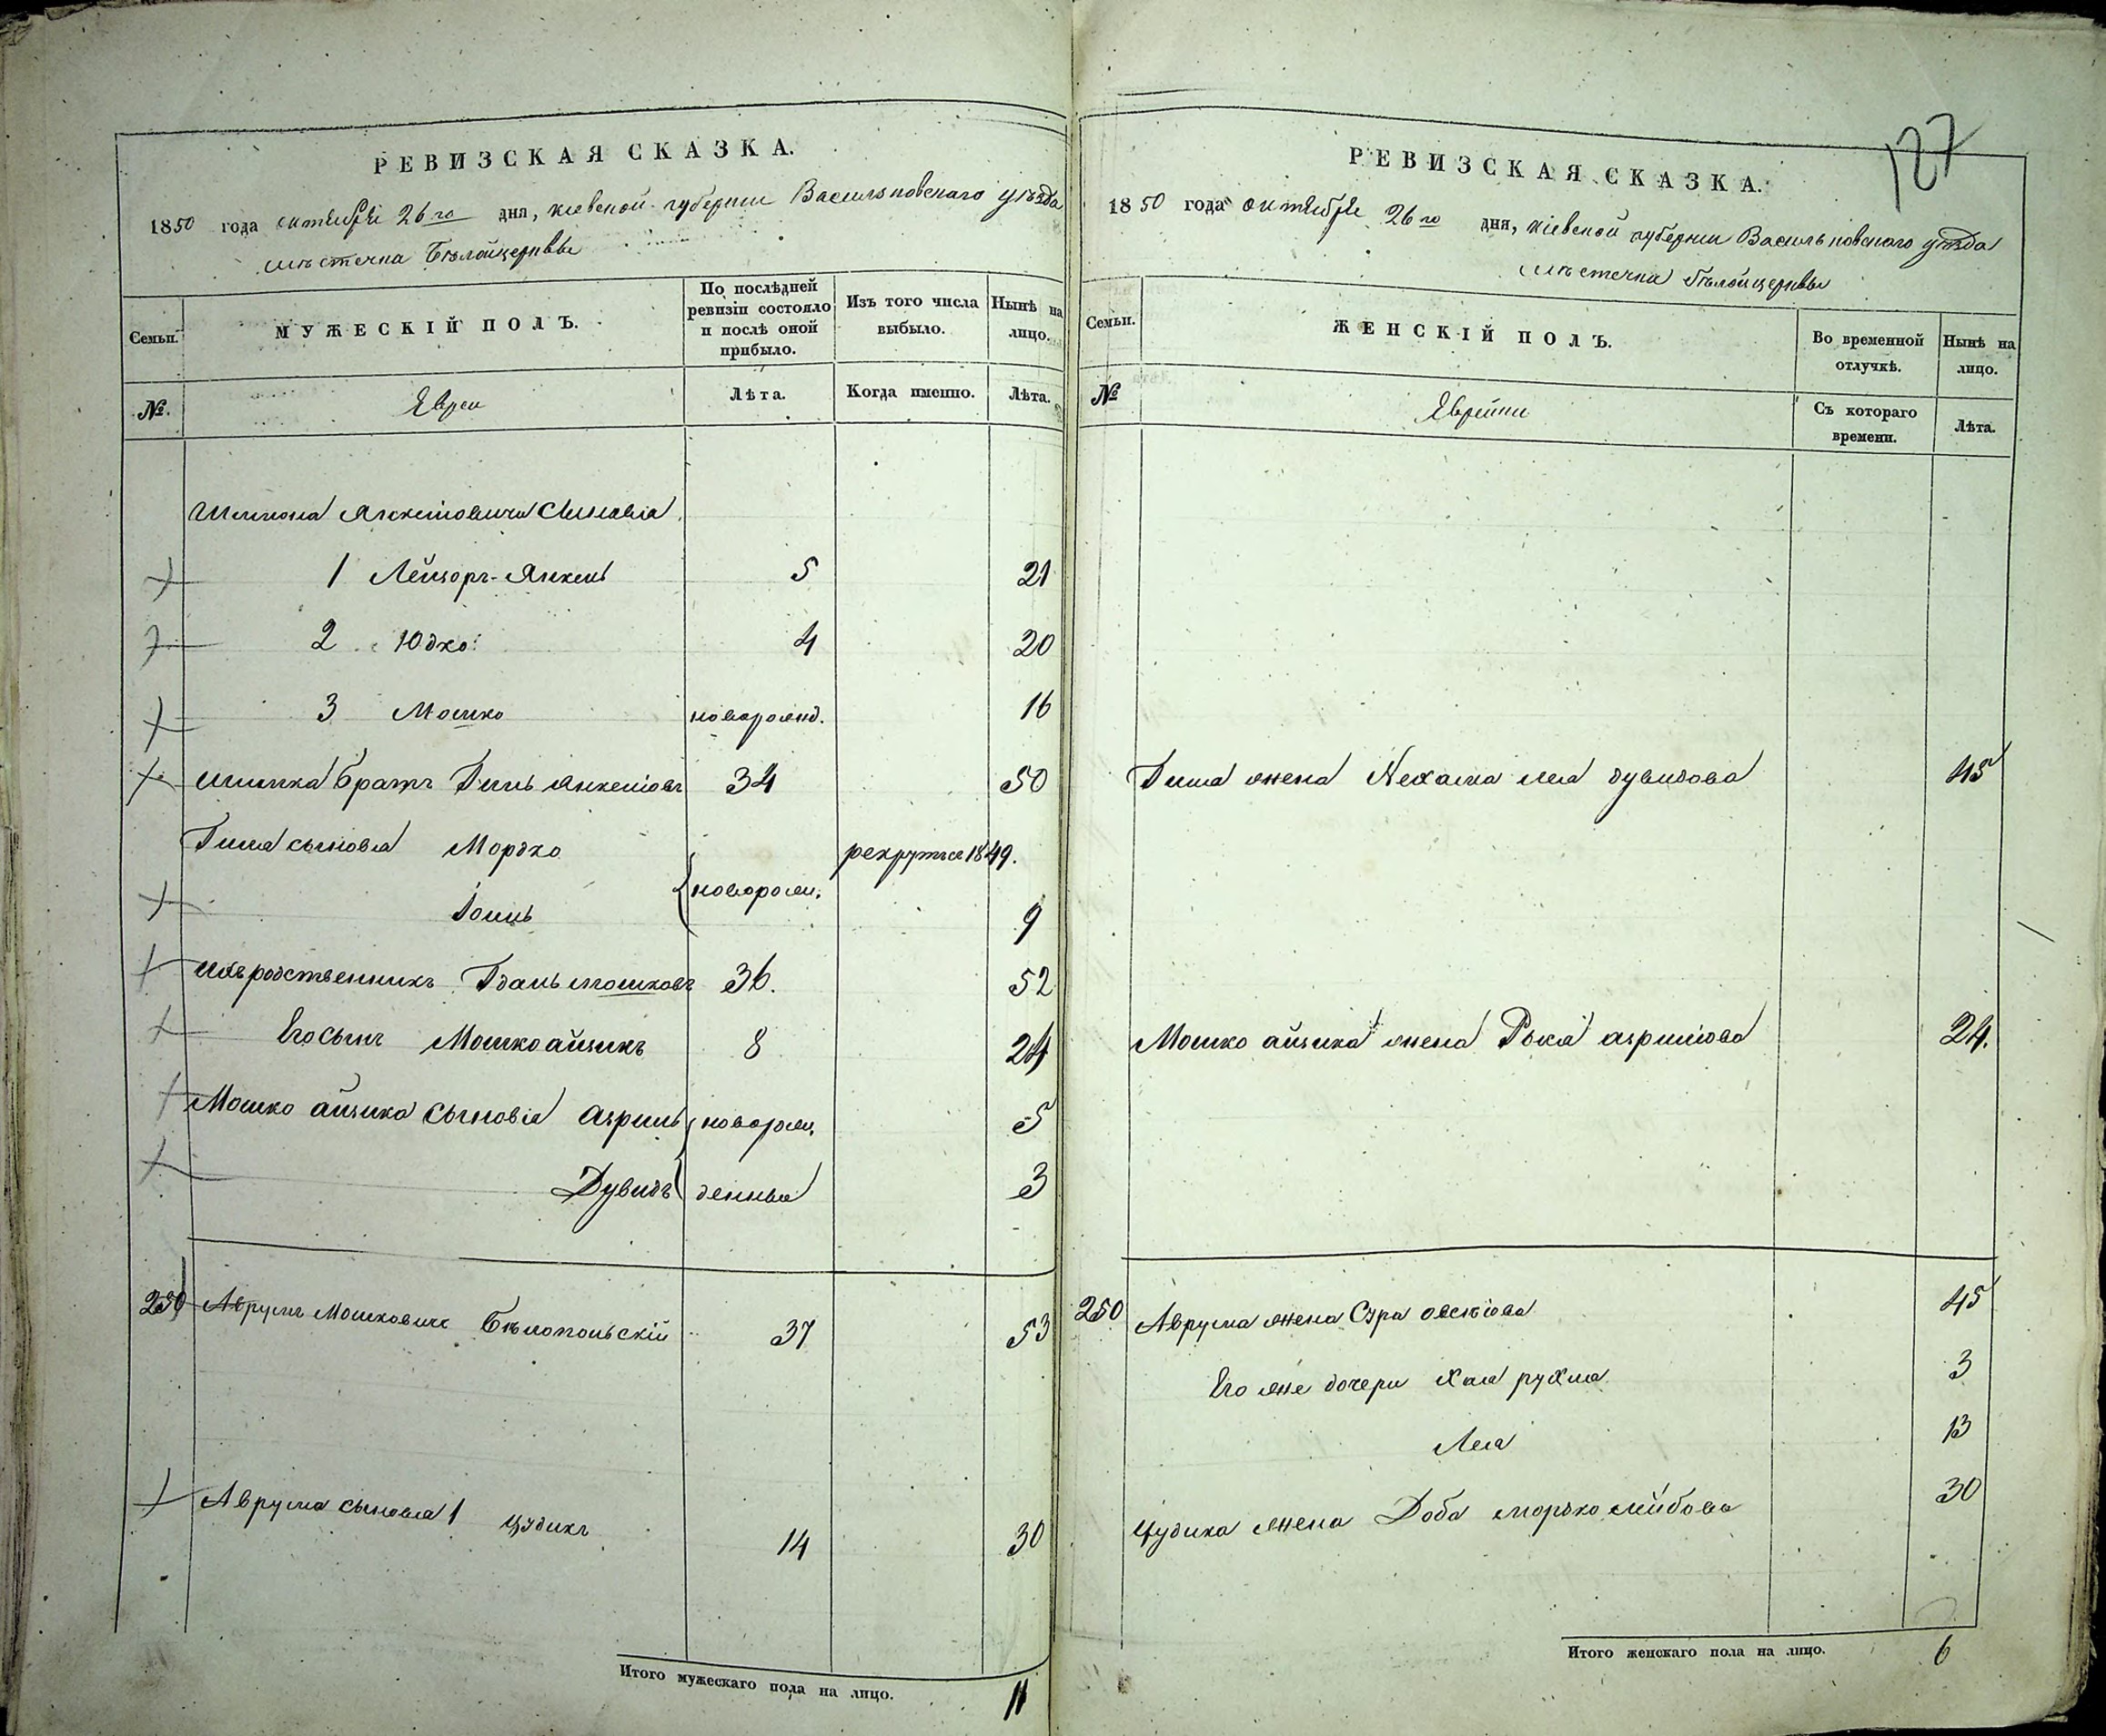 РЕВИЗСКАЯ СКАЗКА.
1850 года октября 26го дня, кіевской губерніи Васильковскаго уѣзда
мѣстечка Бѣлойцеркви
Семьи.
МУЖЕСКІЙ ПОЛЪ.
По послѣдней ревизіи состояло и послѣ оной прибыло.
Изъ того числа выбыло.
Нынѣ на лицо.
№.
Евреи
Лѣта.
Когда именно.
Лѣта.
Янкелiовича Сыновiа
1 Лейзоръ-Янкель 5 21
2 Юдко 4 20
3 Мошко новорожд. 16
братъ Гиль Янкелiовъ 34 50
Гиля сыновья Мордко рекрутъ 1849.
новорож.
9
родственникъ Гдаль мошковъ 36. 52
Его сынъ Мошко айзикъ 8 24
Мошко айзика Сыновiа Азриль новорож 5
Дувидъ денныя 3
250 Аврумъ Мошковичъ Бѣлопольскій 37 53
Аврума сыновья 1 Цудикъ 14 30
Итого мужескаго пола на лицо. 11
127
РЕВИЗСКАЯ СКАЗКА.
1850 года октября 26го дня, кіевской губерніи Васильковскаго уѣзда
мѣстечка бѣлойцеркви
Семьи.
ЖЕНСКІЙ ПОЛЪ.
Во временной отлучкѣ.
Нынѣ на лицо.
№
Еврейки
Съ котораго времени.
Лѣта.
Гиля жена Нехама лея дувидова 45
Мошко айзика жена азрилiова 24.
250 Аврума жена Сура 45
Его же дочери Хая рухля 3
Лея 13
Цудика жена Доба мордко лейбова 30
Итого женскаго пола на лицо. 6